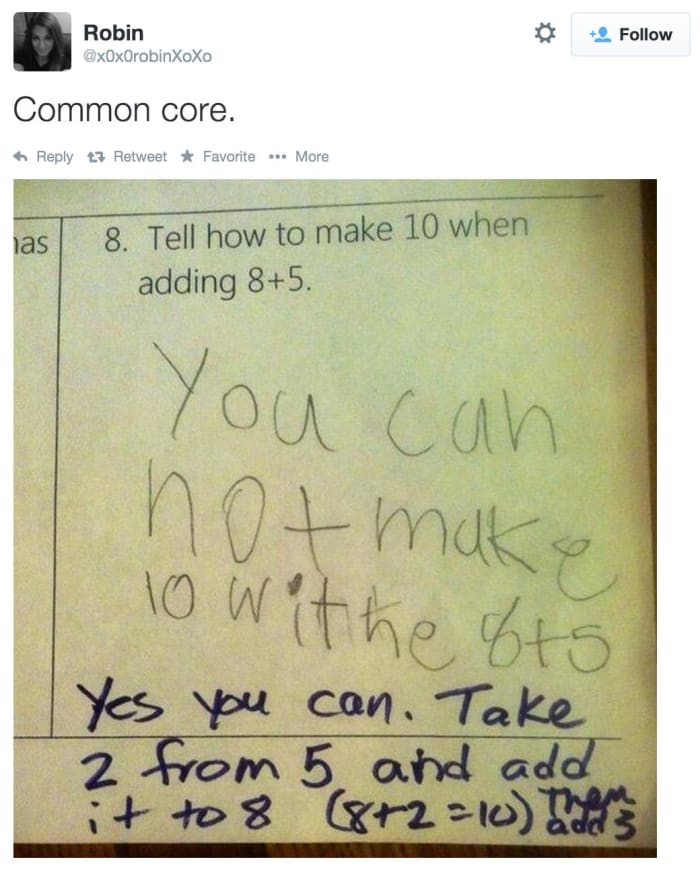 Robin
@x0x0robinXoXo
Follow
Common core.
Reply Retweet Favorite More
nas
8. Tell how to make 10 when
adding 8+5.
You can
not make
10 withthe 8+5
Yes you can. Take
2 from 5 and add
it to 8 (8+2=10) Then
add 3